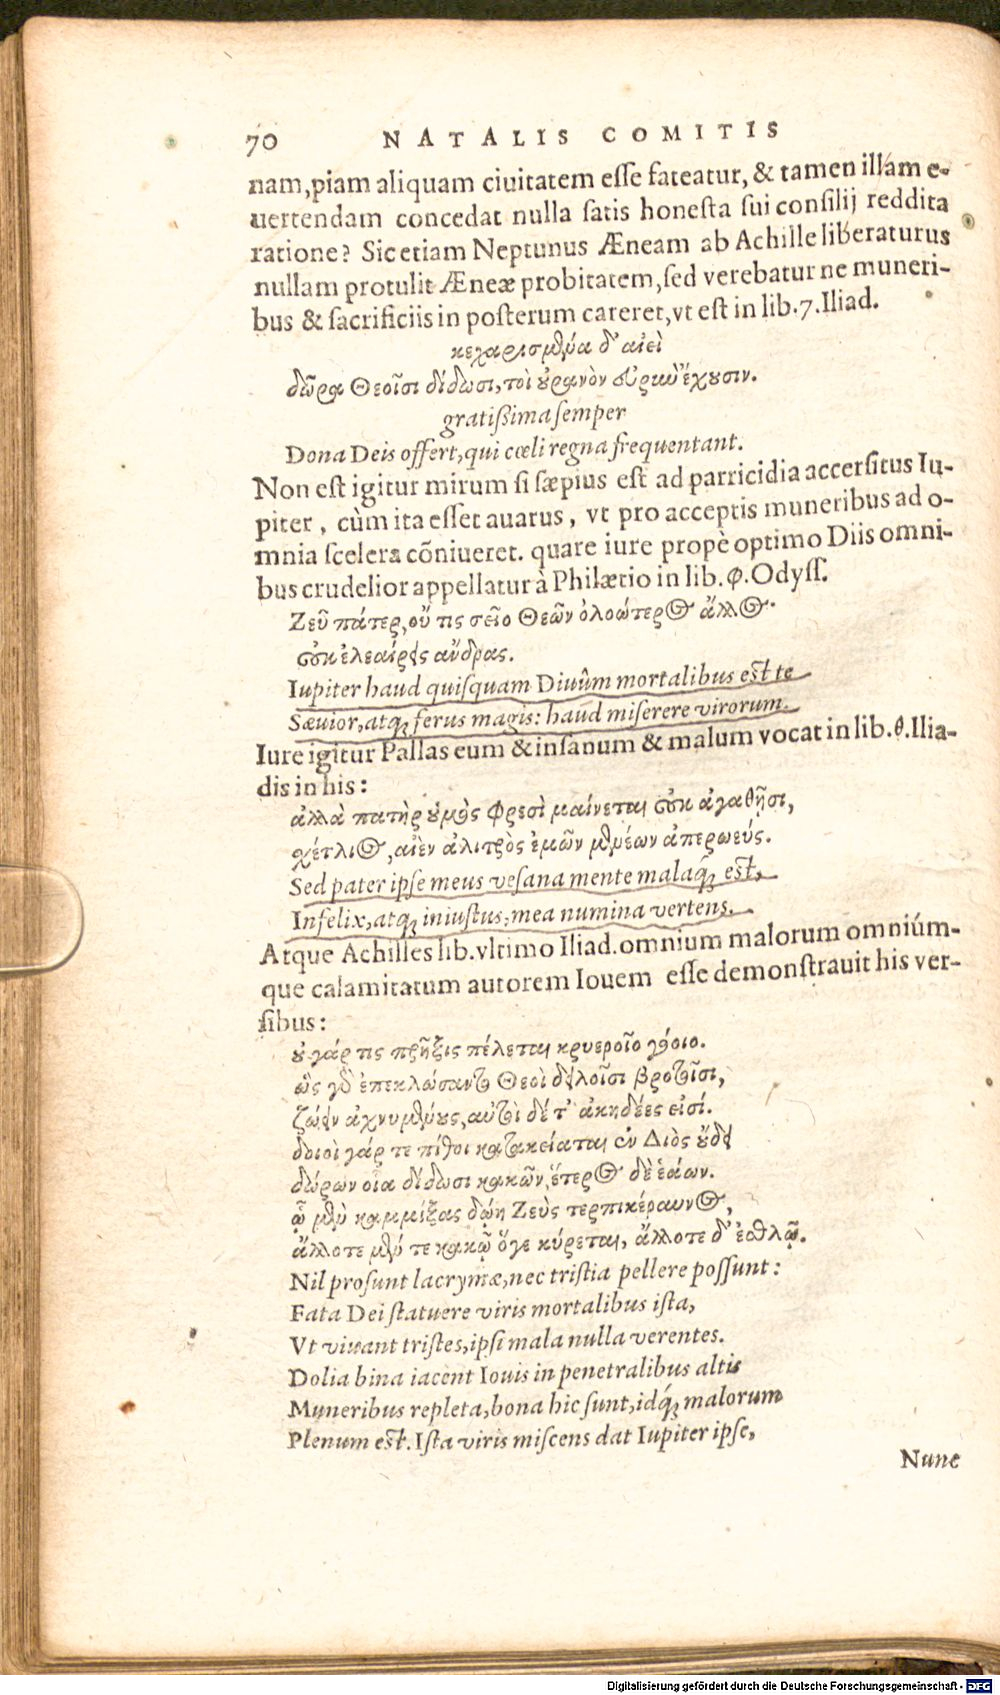 70 NATALIS COMITIS
nam, piam aliquam ciuitatem esse fateatur, & tamen illam e-
uertendam concedat nulla satis honesta sui consilij reddita
ratione? Sic etiam Neptunus Æneam ab Achille liberaturus
nullam protulit Æneæ probitatem, sed verebatur ne muneri-
bus & sacrificiis in posterum careret, vt est in lib. 7. Iliad.
κεχαρισμένα δ' αἰεὶ
δῶρα θεοῖσι δίδωσι, τοὶ οὐρανὸν εὐρὺν ἔχουσιν.
gratißima semper
Dona Deis offert, qui cœli regna frequentant.
Non est igitur mirum si sæpius est ad parricidia accersitus Iu-
piter, cùm ita esset auarus, vt pro acceptis muneribus ad o-
mnia scelera cõniueret. quare iure propè optimo Diis omni-
bus crudelior appellatur à Philætio in lib. φ. Odyss.
Ζεῦ πάτερ, οὔ τις σεῖο θεῶν ὀλοώτερος ἄλλος.
οὐκ ἐλεαίρεις ἄνδρας.
Iupiter haud quisquam Diuûm mortalibus est te
Sæuior, atq; ferus magis: haud miserere virorum.
Iure igitur Pallas eum & insanum & malum vocat in lib. θ. Ilia-
dis in his:
ἀλλὰ πατὴρ οὑμὸς φρεσὶ μαίνεται οὐκ ἀγαθῇσι,
σχέτλιος, αἰὲν ἀλιτρὸς ἐμῶν μενέων ἀπερωεύς.
Sed pater ipse meus vesana mente malaq́; est,
Infelix, atq; iniustus, mea numina vertens.
Atque Achilles lib. vltimo Iliad. omnium malorum omniúm-
que calamitatum autorem Iouem esse demonstrauit his ver-
sibus:
οὐ γάρ τις πρῆξις πέλεται κρυεροῖο γόοιο.
ὣς γὰρ ἐπεκλώσαντο θεοὶ δειλοῖσι βροτοῖσι,
ζώειν ἀχνυμένους, αὐτοὶ δέ τ' ἀκηδέες εἰσί.
δοιοὶ γάρ τε πίθοι κατακείαται ἐν Διὸς οὔδει
δώρων οἷα δίδωσι κακῶν, ἕτερος δὲ ἑάων.
ᾧ μὲν καμμίξας δώῃ Ζεὺς τερπικέραυνος,
ἄλλοτε μέν τε κακῷ ὅγε κύρεται, ἄλλοτε δ' ἐσθλῷ.
Nil prosunt lacrymæ, nec tristia pellere possunt:
Fata Dei statuere viris mortalibus ista,
Vt viuant tristes, ipsi mala nulla verentes.
Dolia bina iacent Iouis in penetralibus altis
Muneribus repleta, bona hic sunt, idq́; malorum
Plenum est. Ista viris miscens dat Iupiter ipse,
Nunc
Digitalisierung gefördert durch die Deutsche Forschungsgemeinschaft - DFG